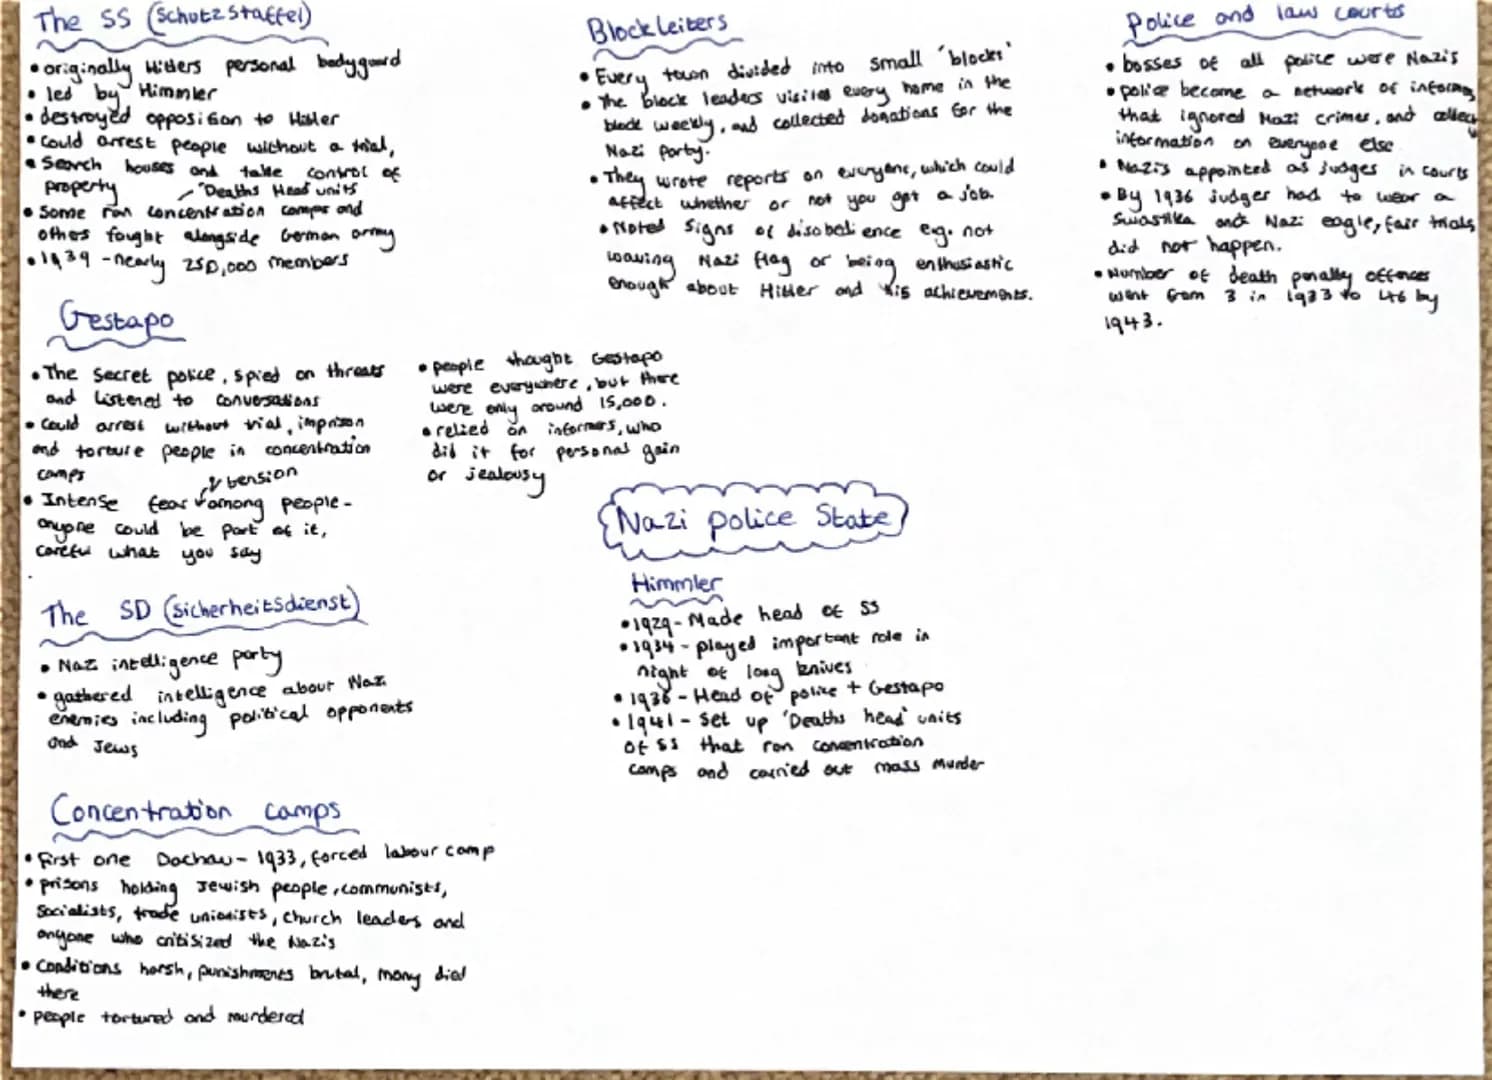 The SS (Schutzstaffel)
• originally Hitlers personal bodyguard
• led by Himmler
• destroyed opposition to Hitler
• Could arrest people without a trial,
• Search houses and take control of
property
"Deaths Head units
• Some ran concentration camps and
others fought alongside German army
• 1939 - nearly 250,000 members
Gestapo
• The secret police, spied on threats
and listened to conversations
• Could arrest without trial, imprison
and torture people in concentration
camps
& tension
• Intense fear among people -
anyone could be part of it,
careful what you say
• people thought Gestapo
were everywhere, but there
were only around 15,000.
• relied on informers, who
did it for personal gain
or jealousy
The SD (Sicherheitsdienst)
• Nazi intelligence party
• gathered intelligence about Nazi
enemies including political opponents
and Jews
Concentration camps
• First one Dachau - 1933, forced labour camp
• prisons holding Jewish people, communists,
Socialists, trade unionists, church leaders and
anyone who critisized the Nazis
• Conditions harsh, punishments brutal, many died
there
• people tortured and murdered
Blockleiters
• Every town divided into small 'blocks'
• The block leaders visited every home in the
block weekly, and collected donations for the
Nazi Party.
• They wrote reports on everyone, which could
affect whether or not you got a job.
• Noted signs of disobedience e.g. not
waving Nazi flag or being enthusiastic
enough about Hitler and his achievements.
Nazi police State
Himmler
• 1929 - Made head of SS
• 1934 - played important role in
night of long knives
• 1936 - Head of police + Gestapo
• 1941 - Set up 'Deaths head' units
of SS that ran concentration
camps and carried out mass murder
Police and law courts
• bosses of all police were Nazis
• police become a network of
that ignored Nazi crimes, and
information on everyone else
• Nazis appointed as judges in courts
• By 1936 judges had to wear a
Swastika and Nazi eagle, fair trials
did not happen.
• Number of death penalty offences
went from 3 in 1933 to 46 by
1943.